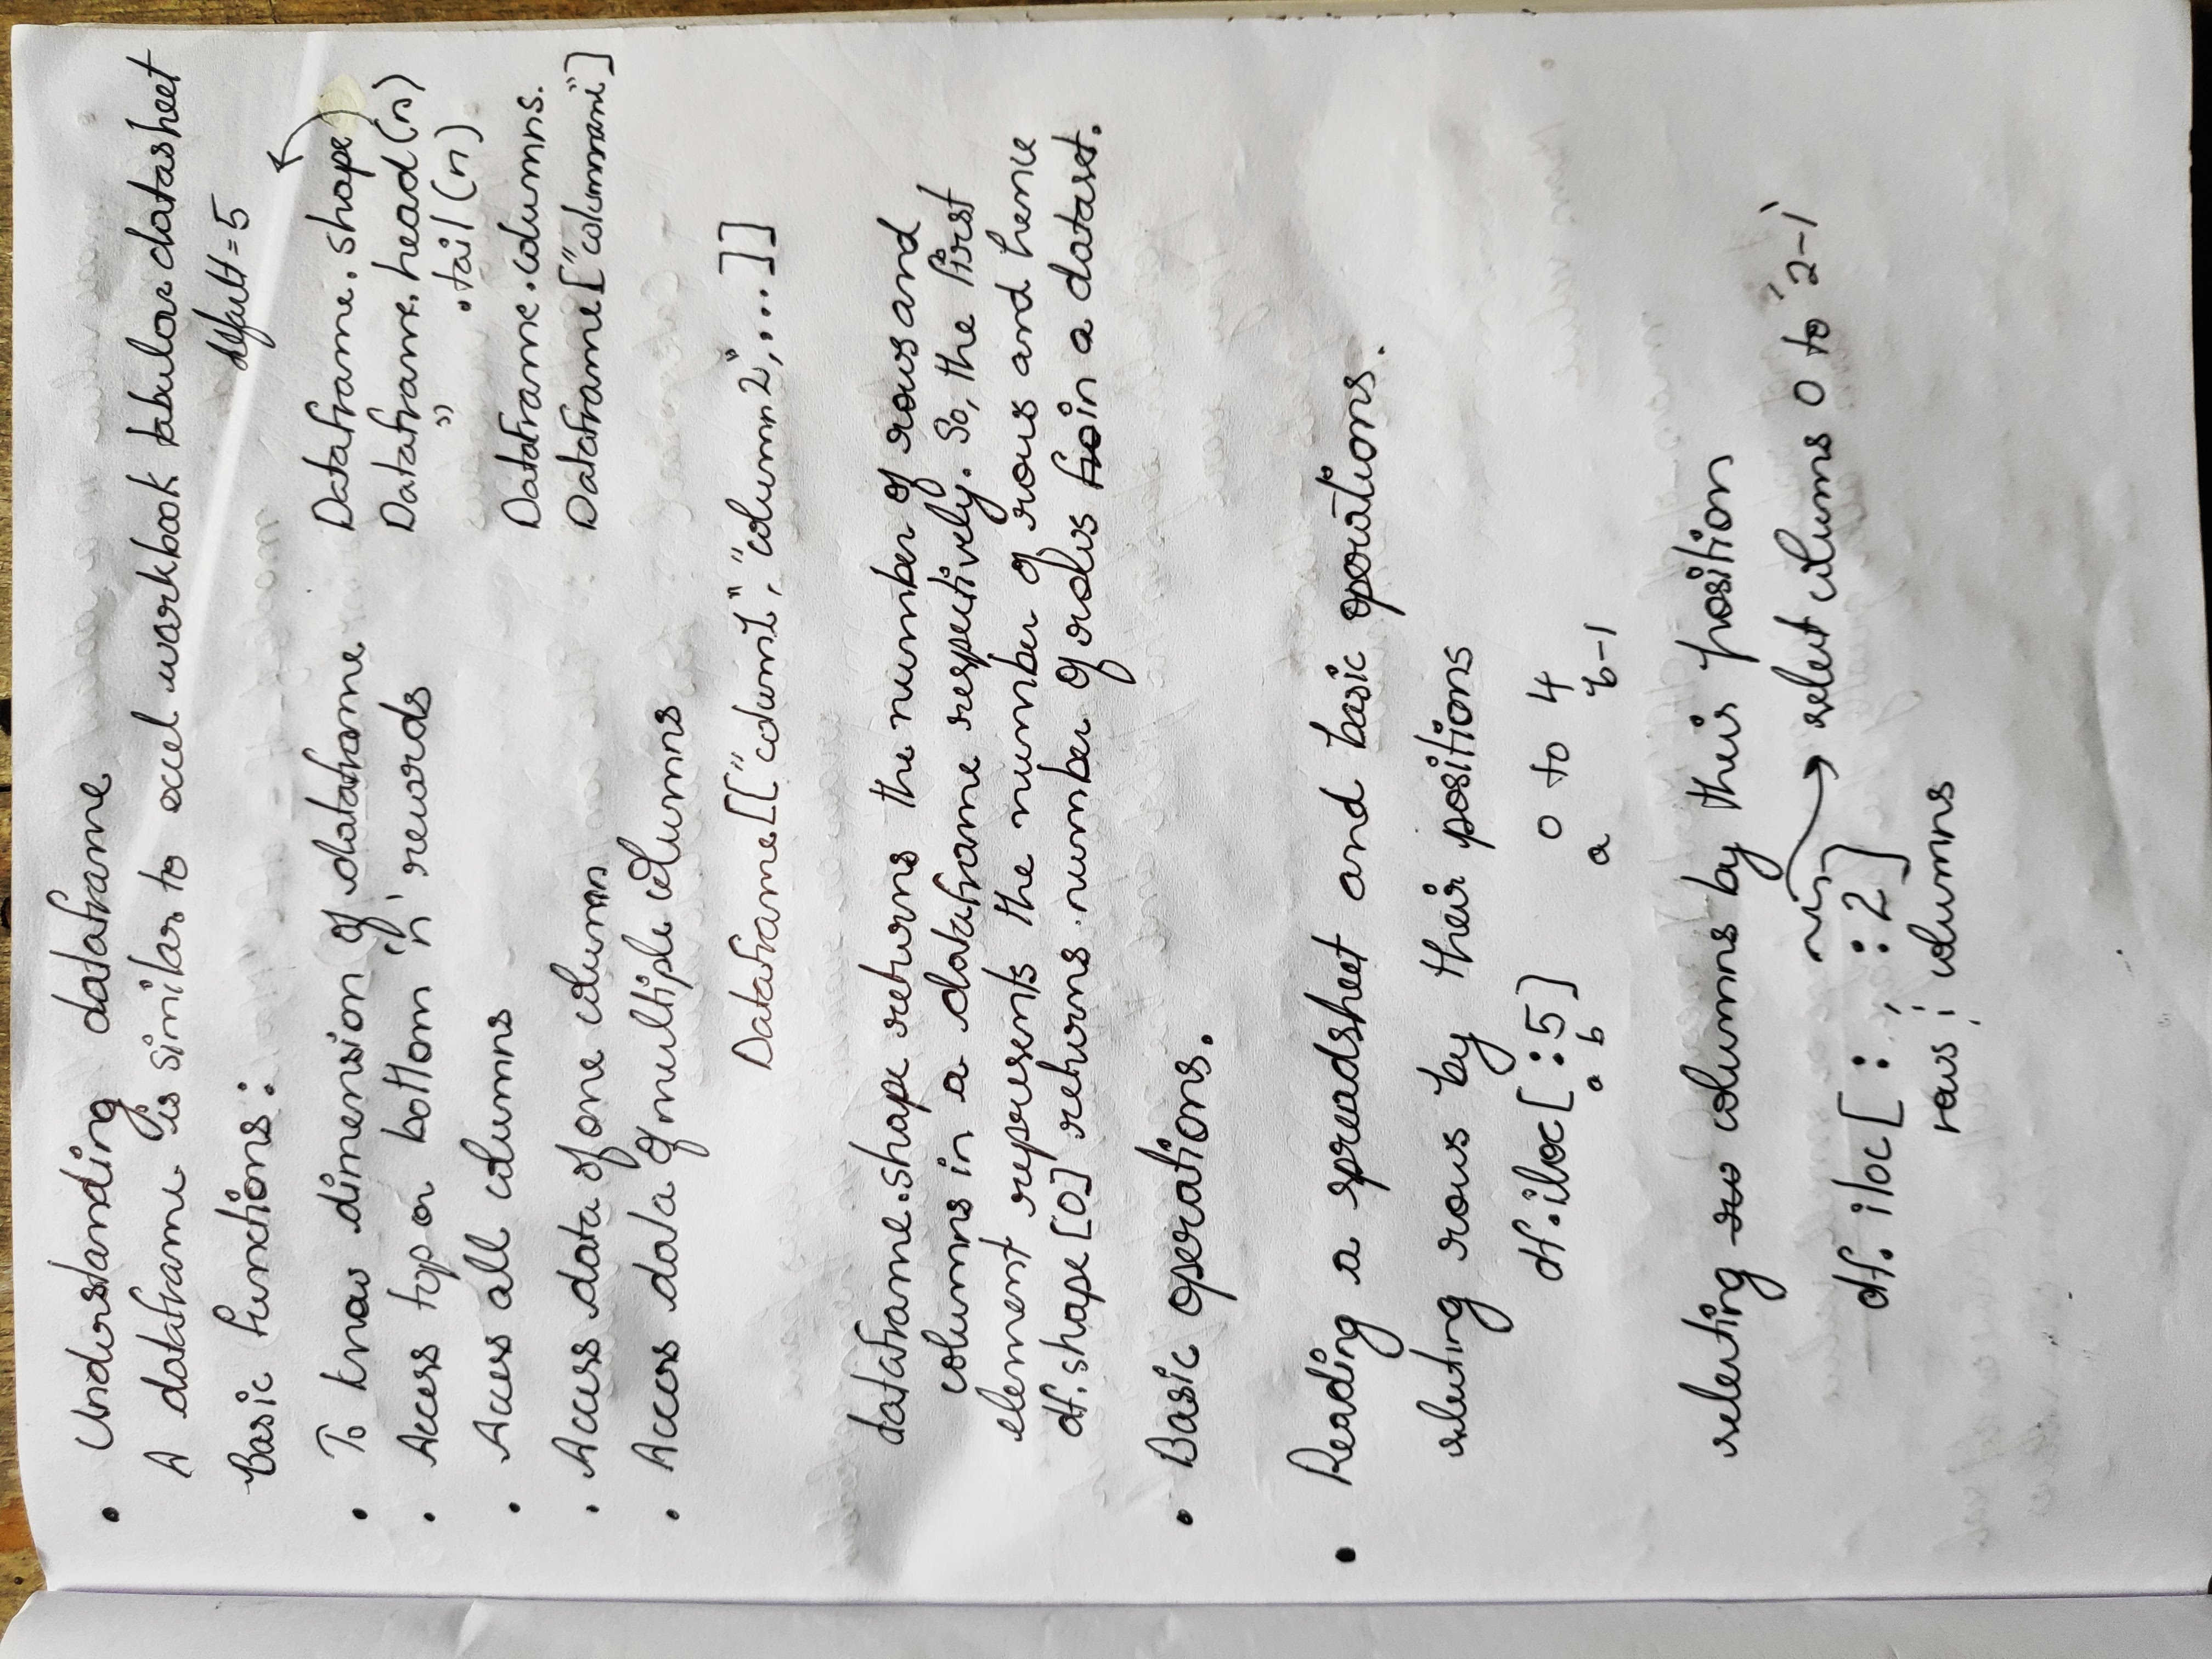 • Understanding dataframe
A dataframe is similar to excel workbook tabular datasheet
Basic functions:
default = 5
• To know dimension of dataframe Dataframe.shape
• Access top or bottom 'n' records Dataframe.head(n)
" .tail(n)
• Access all columns Dataframe.columns.
• Access data of one column Dataframe["columnname"]
• Access data of multiple columns
Dataframe[["colum1", "column2", ...]]
dataframe.shape returns the number of rows and
columns in a dataframe respectively. So, the first
element represents the number of rows and hence
df.shape[0] returns number of rows in a dataset.
• Basic operations.
• Reading a spreadsheet and basic operations.
selecting rows by their positions
df.iloc[ :5] 0 to 4
a b a b-1
selecting columns by their position
select colums 0 to '2-1'
df. iloc[ : , :2]
rows ; columns